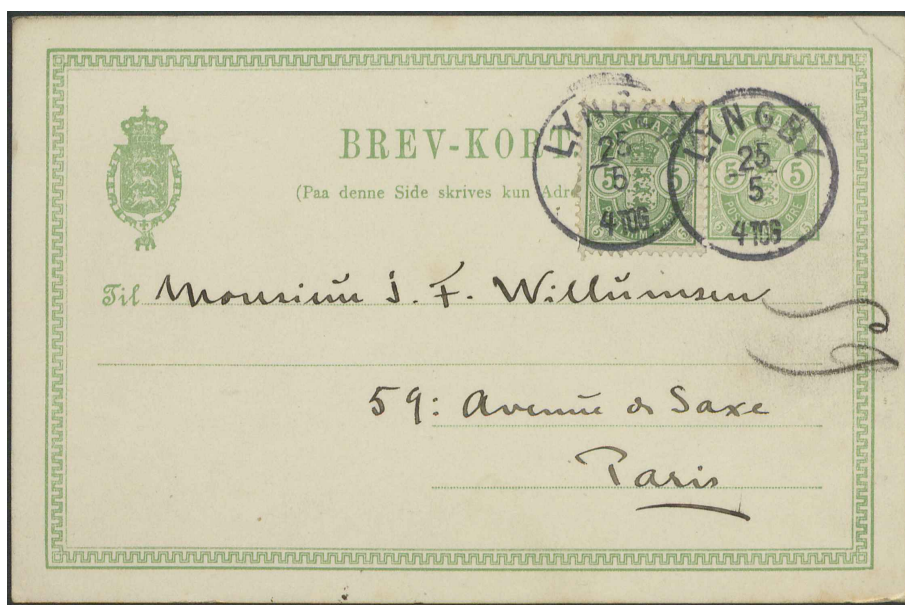 BREV-KORT
(Paa denne Side skrives kun
LYNGBY
25
5
4 TOG
5 5
LYNGBY
25
5
4 TOG
5 5
ØRE
Til Monsieur J. F. Willumsen
59: Avenue de Saxe
Paris